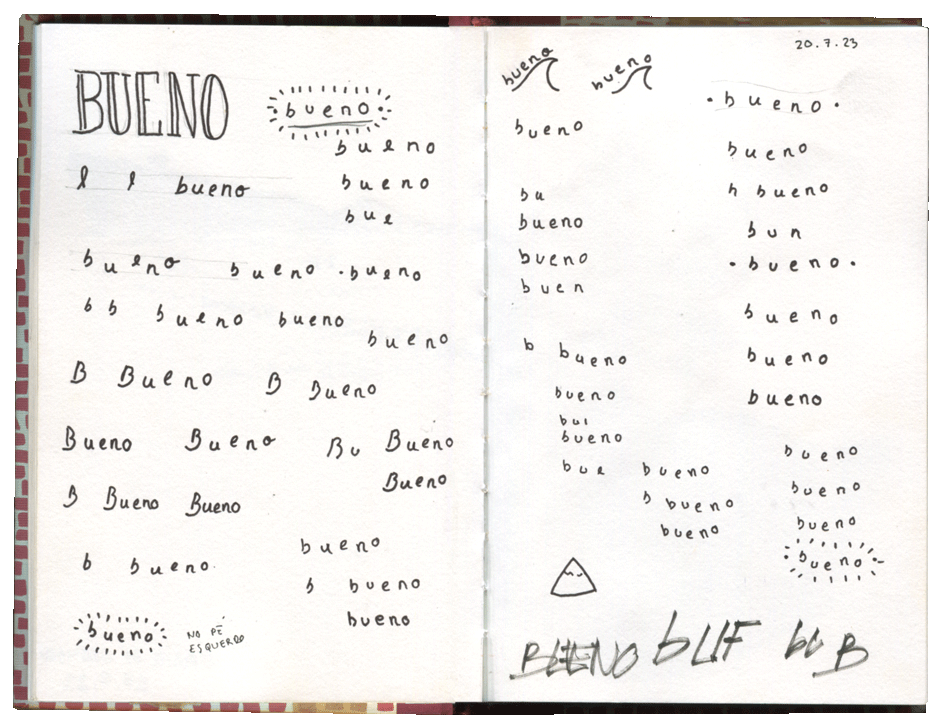 BUENO
bueno
bueno
l l bueno
bueno
bue
bueno bueno bueno
b b bueno bueno
bueno
B Bueno B Bueno
Bueno Bueno Bu Bueno
Bueno
B Bueno Bueno
bueno
b bueno
b bueno
bueno
bueno
NO PÉ
ESQUERDO
20.7.23
bueno bueno
bueno
bu
bueno
bueno
buen
b bueno
bueno
bui
bueno
bue bueno
b bueno
bueno
· bueno ·
bueno
h bueno
bun
· bueno ·
bueno
bueno
bueno
bueno
bueno
bueno
bueno
BUENO bUF bu B